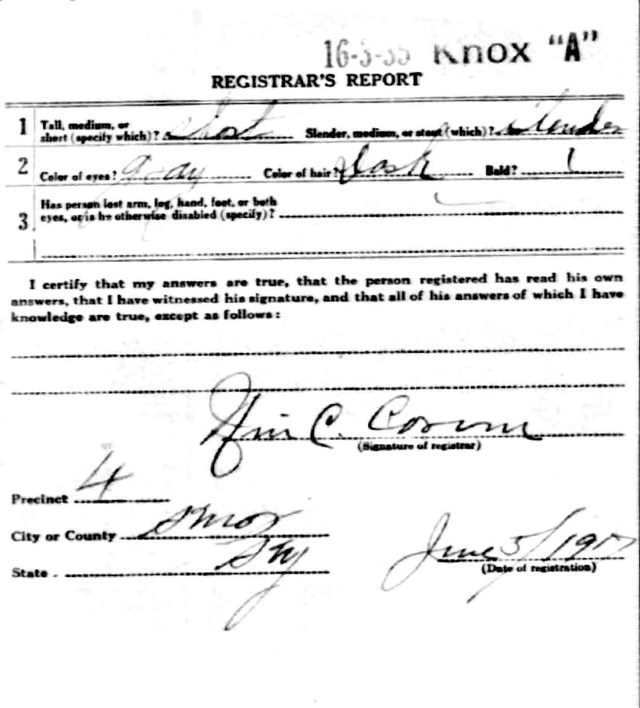 16-3-35 Knox "A"
REGISTRAR'S REPORT
1 Tall, medium, or short (specify which)? Short Slender, medium, or stout (which)? Slender
2 Color of eyes? Gray Color of hair? Dark Bald?
3 Has person lost arm, leg, hand, foot, or both eyes, or is he otherwise disabled (specify)?
I certify that my answers are true, that the person registered has read his own
answers, that I have witnessed his signature, and that all of his answers of which I have
knowledge are true, except as follows:
Wm C.
(Signature of registrar)
Precinct 4
City or County Knox
State Ky June 5/1917
(Date of registration)